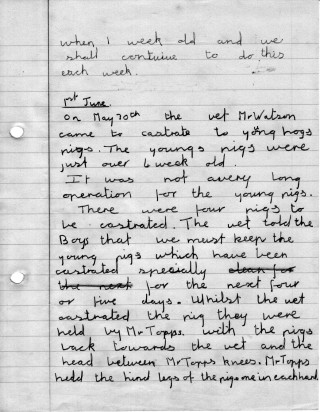 when 1 week old and we
shall contuine to do this
each week.
1st June.
On May 20th the vet Mr Watson
came to castrate to yong hogs
pigs. The youngs pigs were
just over 6 week old.
It was not avery long
operation for the young pigs.
There were four pigs to
be castrated. The vet told the
Boys that we must keep the
young pigs which have been
castrated specially clean for
the next for the next four
or five days. Whilst the vet
castrated the pig they were
held by Mr Topps. with the pigs
back towards the vet and the
head between Mr Topps knees. Mr Topps
held the hind legs of the pigs one in each hand.